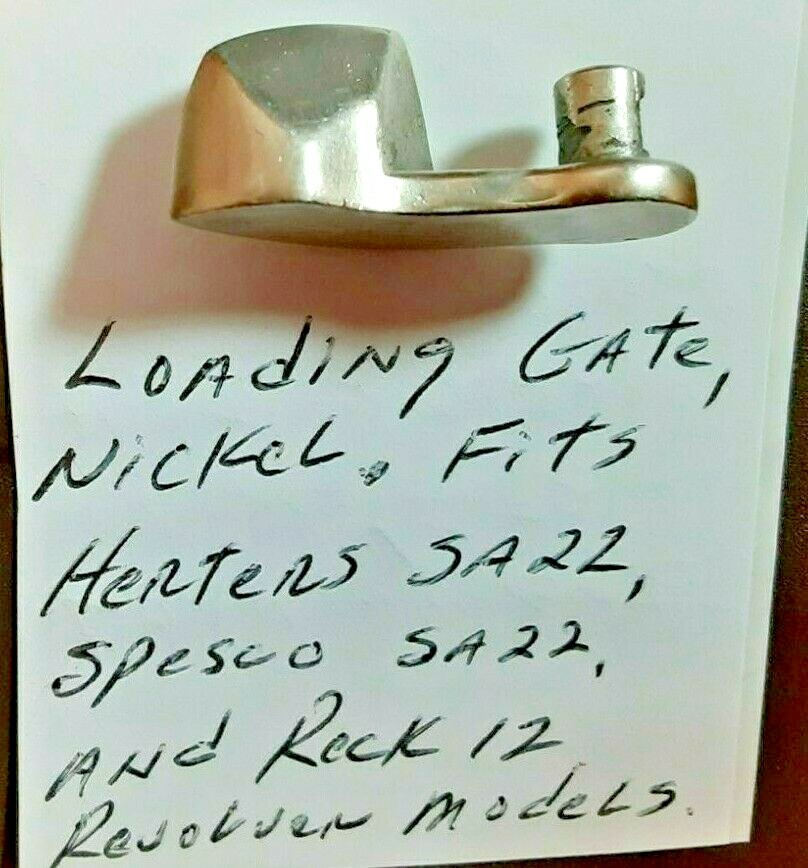 Loading Gate,
Nickel. Fits
Herters SA22,
Spesco SA22,
And Reck 12
Revolver Models.